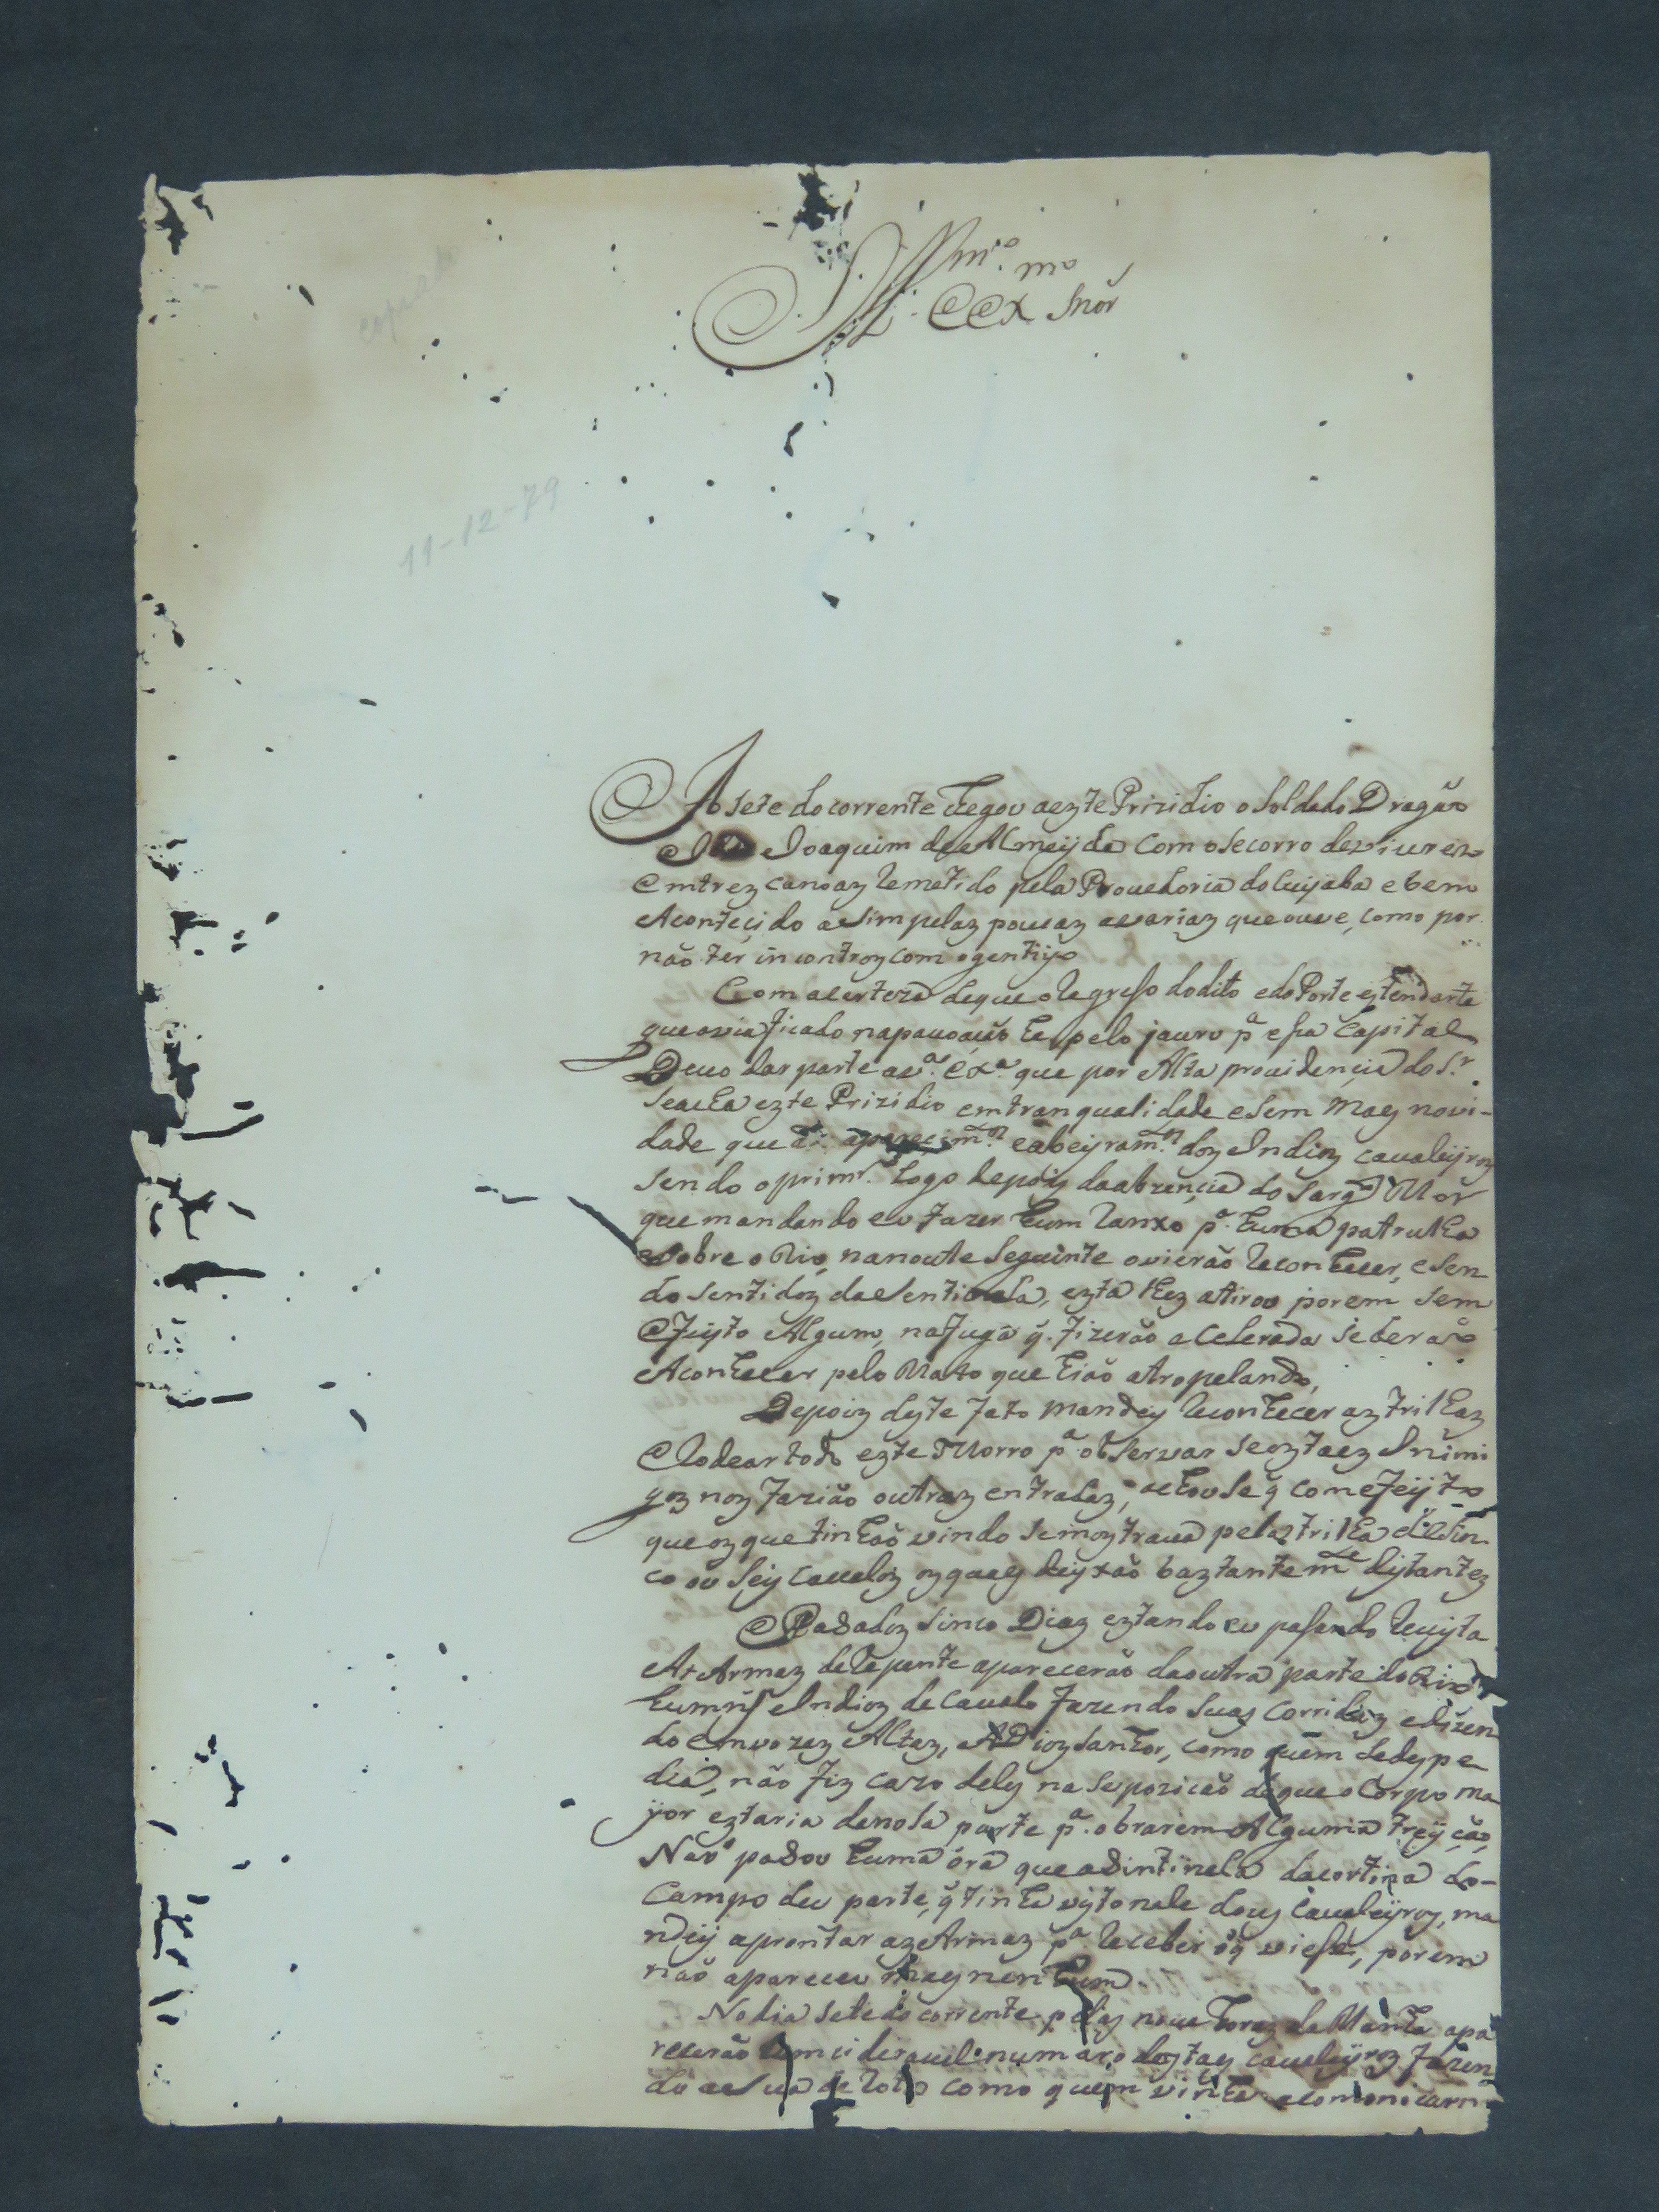 Illm.º
e Ex.mo Snõr
copiado
11-12-79
Ao sete do corrente chegou a ezte Prizidio o Soldado Dragão
Joaquim de Almeijda com o Secorro de viurez
em trez canoaz remetido pela Prouedoria do Cuijaba e bem
Aconteçido asim pelaz poucaz avariaz que ouve, como por
não ter incontroz com o gentiyo
Com a certeza de que o regreso do dito e do Porte eztendarte
que avia ficado na pauoação he pelo jauru p.ª esa Capital
Deuo dar parte a v.ª Ex.ª que por Alta prouidençia do S.r
se acha ezte Prizidio em tranqualidade e sem mays novi-
dade que apareçim.to e abeyram.to doz Indioz caualeijroz
sendo o prim.r logo depoiz da abzençia do Sarg.to Mor
que mandando eu fazer hum ranxo p.ª huma patrulha
sobre o Rio, na noute seguinte o vierão reconhecer, e sen
do sentidoz da sentinela, ezta lhez attirou porem sem
efeyto Algum, na fuga q̃ fizerão acelerada se deraõ
A conhecer pelo Mato que hião atropelando,
Depoiz dezte fato mandey reconhecer az trilhaz
e rodear todo ezte Morro p.ª observar se eztaez Inimi
goz noz fazião outraz entradaz, achouse q̃ com efeijto
que oz que tinhão vindo se moztraua pela trilha
co ou seiz caualoz oz quaez deyxão baztantem.te diztantez
Pasadoz sinco Diaz eztando eu pasando reuizta
As Armaz de repente aparecerão da outra parte do Rio
hunz Indioz de caualo fazendo suaz corridaz e dizen
do em vozez Altaz, A Dioz Senhor, como quem se dezpe
dia, não fiz cazo delez na supozição de que o Corpo ma
yor eztaria da nosa parte p.ª obrarem Alguma treijção,
Não pasou huma óra que a sintinela da cortina do
Campo deu parte, q̃ tinha vizto nele dous caualeijroz, ma
ndeij aprontar az Armaz p.ª receber o q̃ viese, porem
não apareceu mays nenhum
No dia sete do corrente pelaz noue horaz da Manhã apa
recerão numaro deztez caualeijroz fazen
do a sua como quem vinha a comonicarm